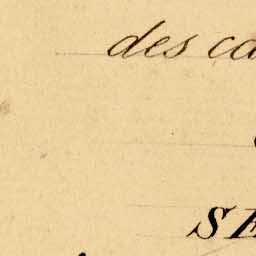 des ca
SE